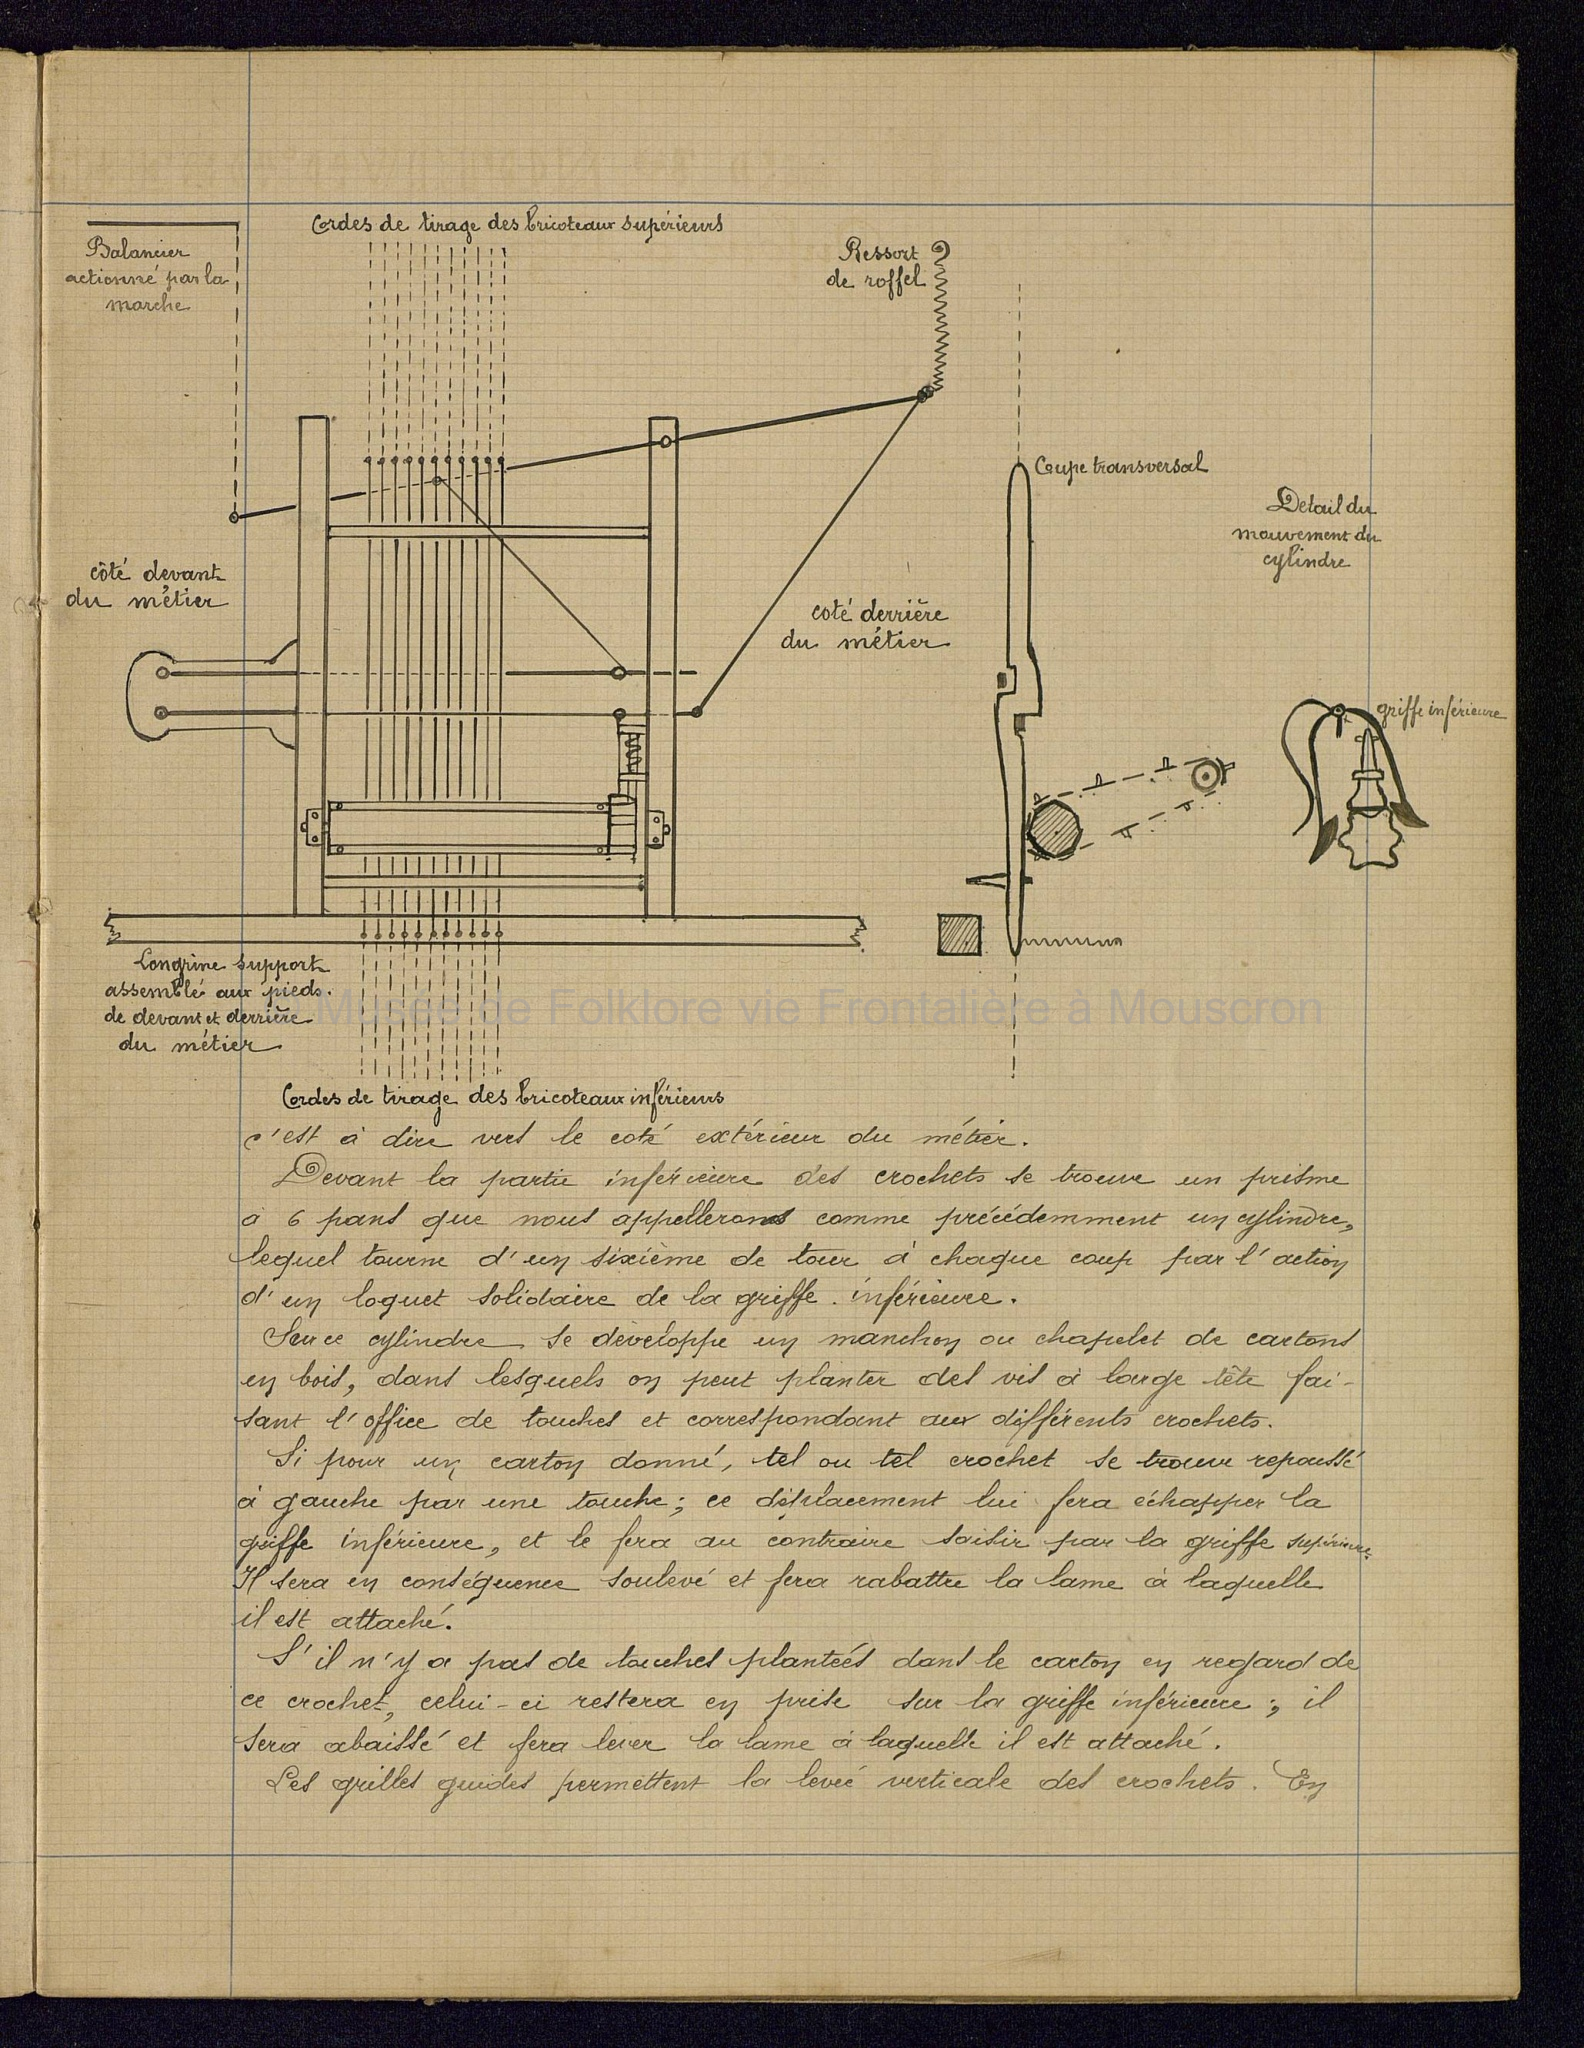 Cordes de tirage des bricoteaux supérieurs
Balancier
actionné par la
marche
Ressort
de roffel
Coupe transversal
Détail du
mouvement du
cylindre
côté devant
du métier
coté derrière
du métier
griffe inférieure
Longrine support
assemblé aux pieds
de devant et derrière
du métier
Musée de Folklore vie Frontalière à Mouscron
Cordes de tirage des bricoteaux inférieurs
c'est à dire vers le coté extérieur du métier.
Devant la partie inférieure des crochets se trouve un prisme
à 6 pans que nous appellerons comme précédemment un cylindre,
lequel tourne d'un sixième de tour à chaque coup par l'action
d'un loquet solidaire de la griffe inférieure.
Sur ce cylindre se développe un manchon ou chapelet de cartons
en bois, dans lesquels on peut planter des vis à large tête fai-
sant l'office de touches et correspondant aux différents crochets.
Si pour un carton donné, tel ou tel crochet se trouve repoussé
à gauche par une touche; ce déplacement lui fera échapper la
griffe inférieure, et le fera au contraire saisir par la griffe supérieure.
Il sera en conséquence soulevé et fera rabattre la lame à laquelle
il est attaché.
S'il n'y a pas de touches plantées dans le carton en regard de
ce crochet, celui-ci restera en prise sur la griffe inférieure; il
sera abaissé et fera lever la lame à laquelle il est attaché.
Les grilles guides permettent la levée verticale des crochets. En